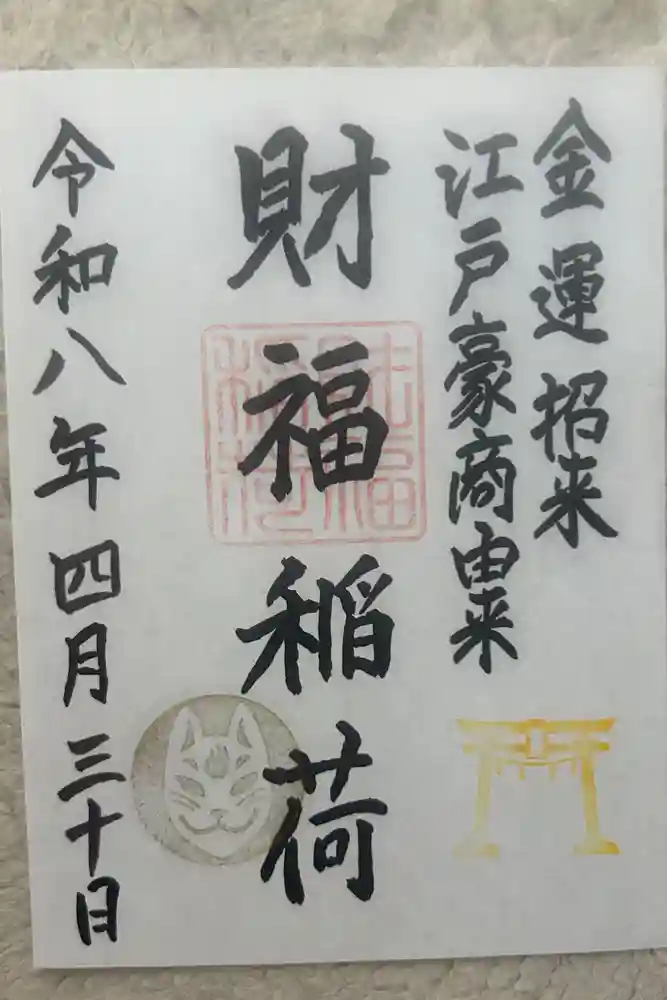 金運招来
江戸豪商由来
財福稲荷
財福稲荷
令和八年四月三十日